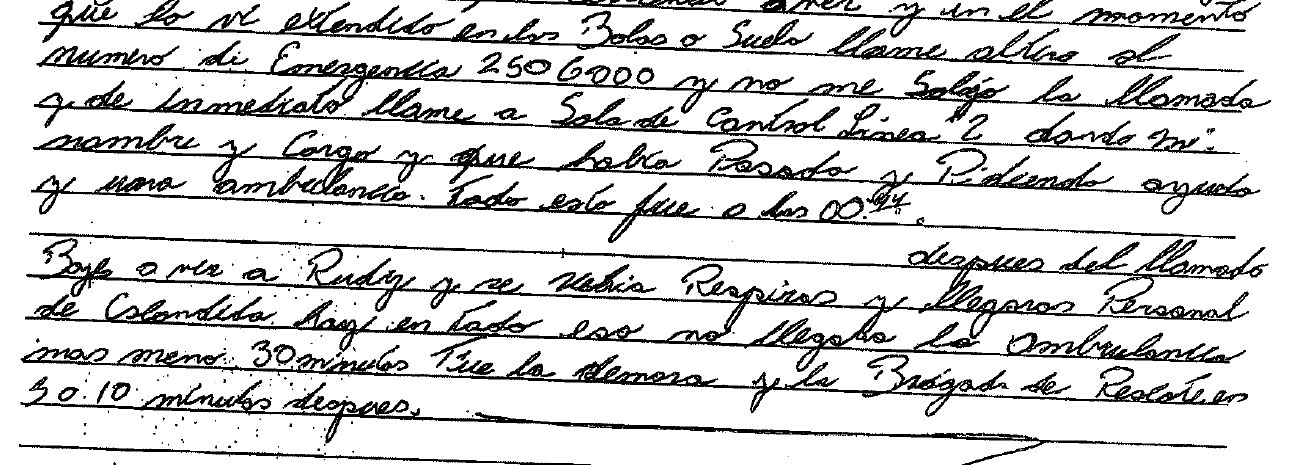 que lo vi extendido en las Bolas o Suelo llame altiro al
numero de Emergencia 2506000 y no me Salio la llamada
y de inmediato llame a Sala de Control Linea #2 dando mi
nombre y Cargo y que habia Pasado y Pidiendo ayuda
y una ambulancia. todo esto fue a las 00:
despues del llamado
Baje a ver a Rudy y se Respirar y llegaron Personal
de Colondida hay en todo eso no llegaba la ambulancia
mas meno 30 minutos Fue la demora y la Brigada de Rescate en
5 o 10 minutos despues.